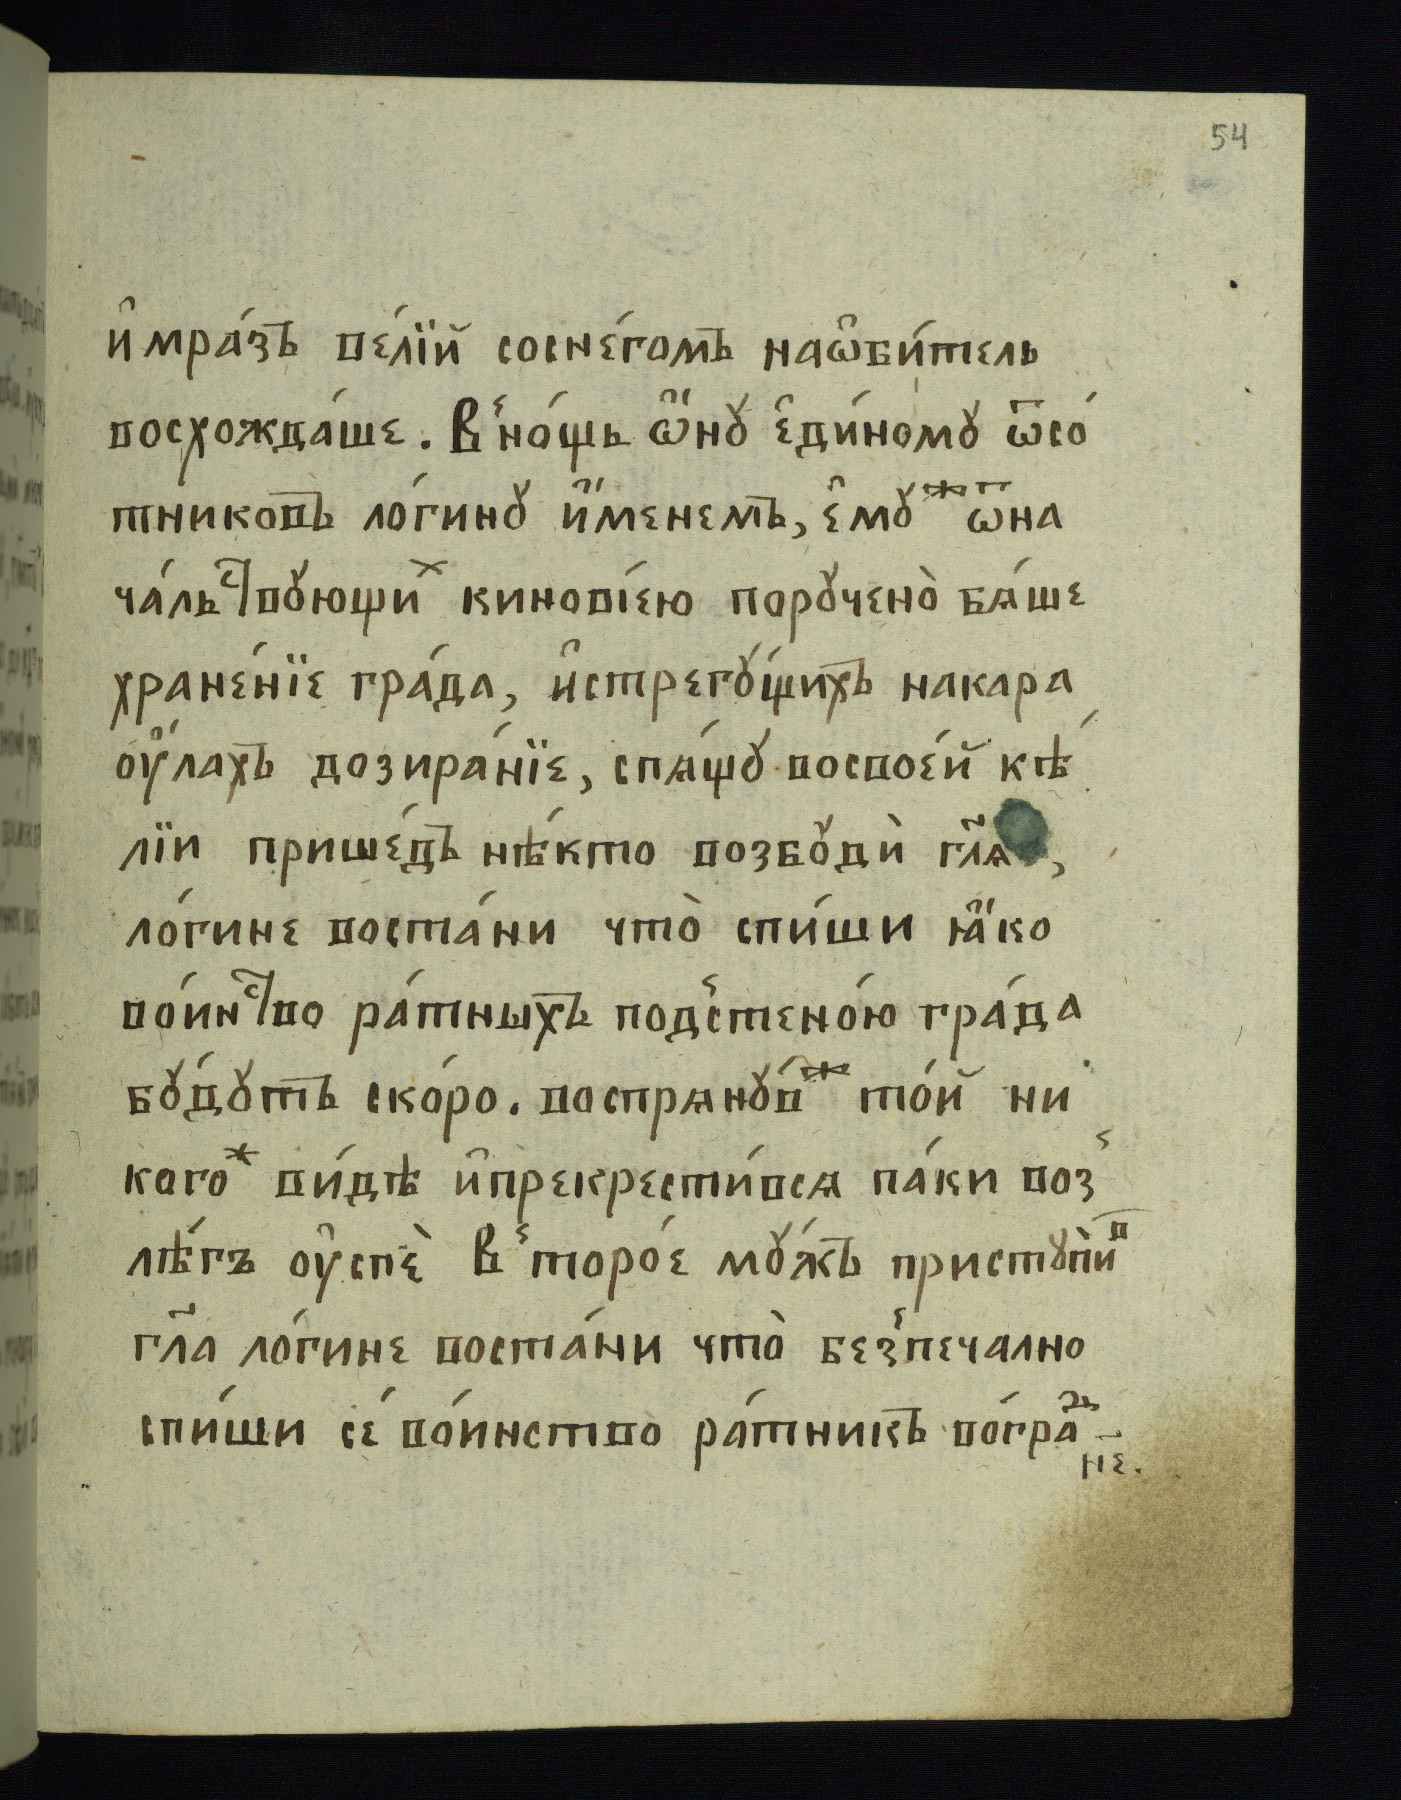 54
и҆мра́зъ ве́лїй соснегомъ наѡ҆би́тель
восхожда́ше. В но́щь ѡ҆́нꙋ є҆ди́номꙋ ѿсо́
тниковъ ло́гинꙋ и҆́менемъ, є҆мꙋж ѿна
ча́льствꙋющих киновїею порꙋчено̀ бѧ́ше
хране́нїе гра́да, и҆стрегꙋ́щихъ накара
оу҆́лахъ дозира́нїе, спѧ́щꙋ восвое́й кѣ́
лїи прише́дъ нѣ́кто возбꙋдѝ гл҃ѧ,
ло́гине воста́ни что̀ спи́ши ꙗ҆́ко
во́инство ра́тныхъ подстено́ю гра́да
бꙋ́дꙋтъ ско́ро. воспрѧнꙋ́вж то́й ни
когож ви́дѣ и҆прекрести́всѧ па́ки воз
лѣ́гъ оу҆спѐ В торо́е мꙋ́жъ пристꙋпи́в
гл҃а ло́гине воста́ни что̀ безпечално
спи́ши се́ во́инство ра́тникъ во́градъ
не.